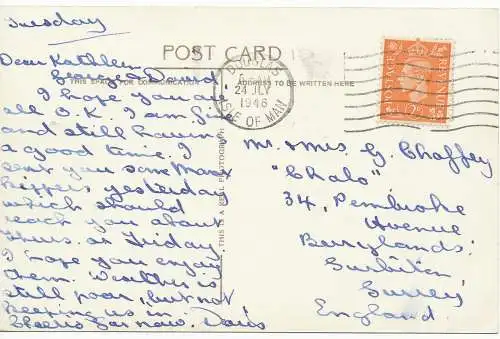 Tuesday
POST CARD
THIS SPACE FOR COMMUNICATION
ADDRESS TO BE WRITTEN HERE
DOUGLAS
24 JLY
1946
ISLE OF MAN
POSTAGE
REVENUE
THIS IS A REAL PHOTOGRAPH
Dear Kathleen
George & David
I hope you are
all O.K. I am fine
and still having
a good time. I
sent you some Manx
kippers yesterday
which should
reach you about
Thurs. or Friday
I hope you enjoy
them. Weather is
still poor, but not
keeping us in.
Cheerio for now. Doris
Mr. & Mrs. G. Chaffey
"Chalo"
34, Pembroke
Avenue
Berrylands.
Surbiton
Surrey
England.